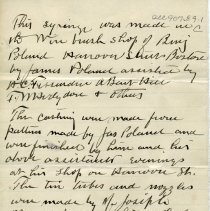 acc 907.89.1
This syringe was made in
the Wire brush shop of Benj
Poland Hanover Street Boston
by James Poland assisted by
A C Fernandez A Bart Hill
T M Hedgdon & others
The casting was made from
patterns made by Jas Poland and
were finished by him and his
above assistants evenings
at his shop on Hanover St.
The tin tubes and nozzles
were made by Mr Joseph